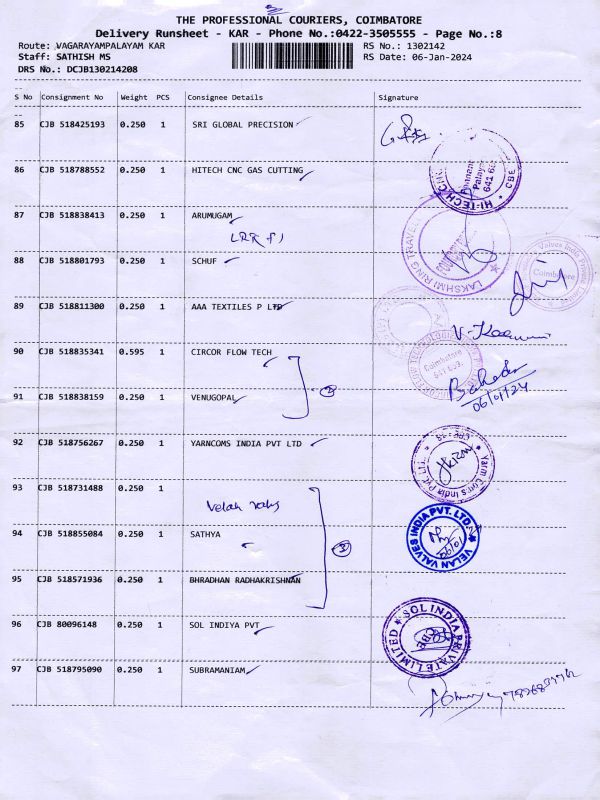 THE PROFESSIONAL COURIERS, COIMBATORE
Delivery Runsheet - KAR - Phone No.:0422-3505555 - Page No.:8
Route: VAGARAYAMPALAYAM KAR RS No.: 1302142
Staff: SATHISH MS RS Date: 06-Jan-2024
DRS No.: DCJB130214208
S No Consignment No Weight PCS Consignee Details Signature
85 CJB 518425193 0.250 1 SRI GLOBAL PRECISION
86 CJB 518788552 0.250 1 HITECH CNC GAS CUTTING
HI-TECH CNC
641 659
CBE
87 CJB 518838413 0.250 1 ARUMUGAM
LAKSHMI RING TRAVEL
88 CJB 518801793 0.250 1 SCHUF
Valves India Private
Coimbatore
89 CJB 518811300 0.250 1 AAA TEXTILES P LTD
90 CJB 518835341 0.595 1 CIRCOR FLOW TECH
Coimbatore
06/01/24
91 CJB 518838159 0.250 1 VENUGOPAL
92 CJB 518756267 0.250 1 YARNCOMS INDIA PVT LTD
Yarn Coms India Pvt. Ltd.
93 CJB 518731488 0.250 1
94 CJB 518855084 0.250 1 SATHYA
VELAN VALVES INDIA PVT. LTD.
95 CJB 518571936 0.250 1 BHRADHAN RADHAKRISHNAN
96 CJB 80096148 0.250 1 SOL INDIYA PVT
SOL INDIA PRIVATE LIMITED
CBE
97 CJB 518795090 0.250 1 SUBRAMANIAM